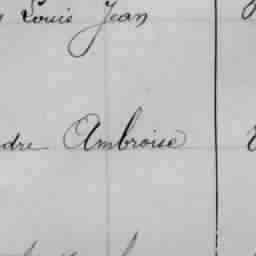 Louis Jean
dre Ambroise